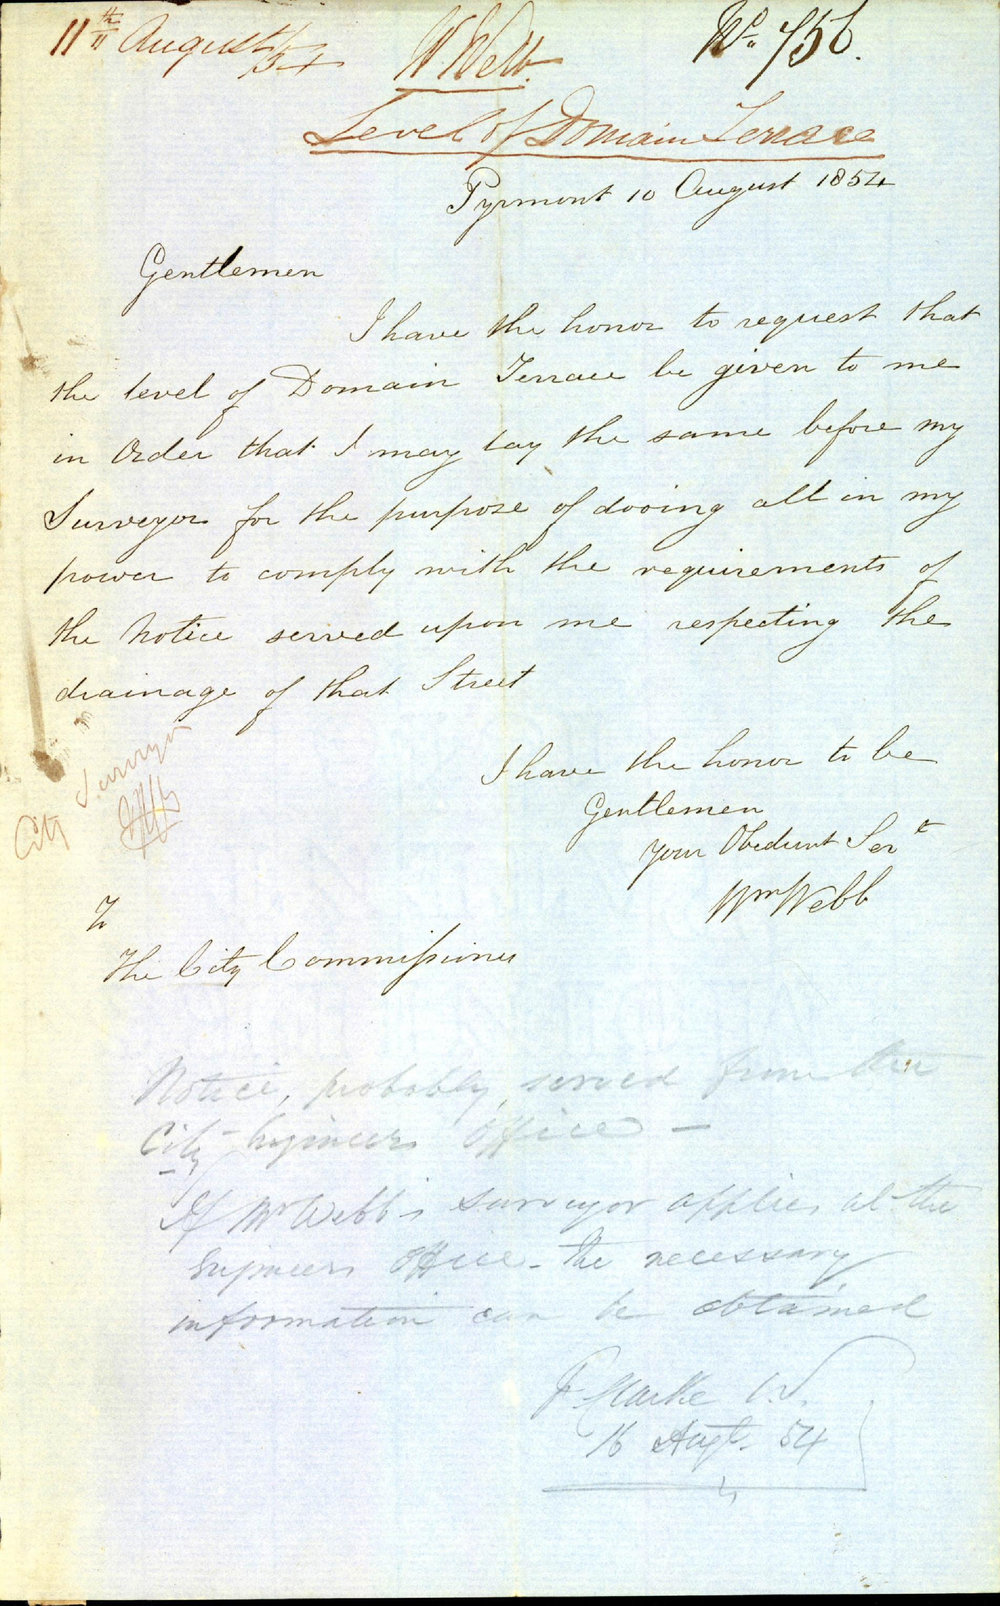 11th August /54 W Webb. No. 756.
Level of Domain Terrace
Pyrmont 10 August 1854
Gentlemen
I have the honor to request that
the level of Domain Terrace be given to me
in Order that I may lay the same before my
Surveyor for the purpose of dooing all in my
power to comply with the requirements of
the Notice served upon me respecting the
drainage of that Street
I have the honor to be
Gentlemen
your Obedient Servt
Wm Webb
City Surveyor
To
The City Commissioners
Notice, probably, served from the
City Engineers Office —
If Mr Webb's surveyor applies at the
Engineers Office - the necessary
information can be obtained
F. Clarke C.S.
16 Augt. 54